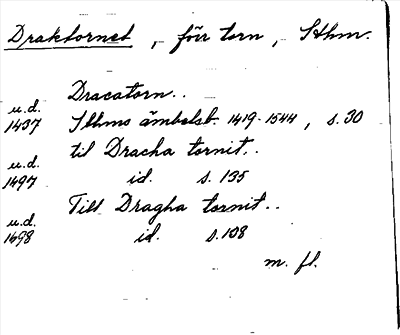 Draktornet, - förr torn, Sthm.
Dracatorn..
u.d.
1437 Sthms ämbetsb. 1419-1544, s. 30
til Dracha tornit..
u.d.
1497 id. s. 135
Till Dragha tornit..
u.d.
1498 id. s. 108
m. fl.